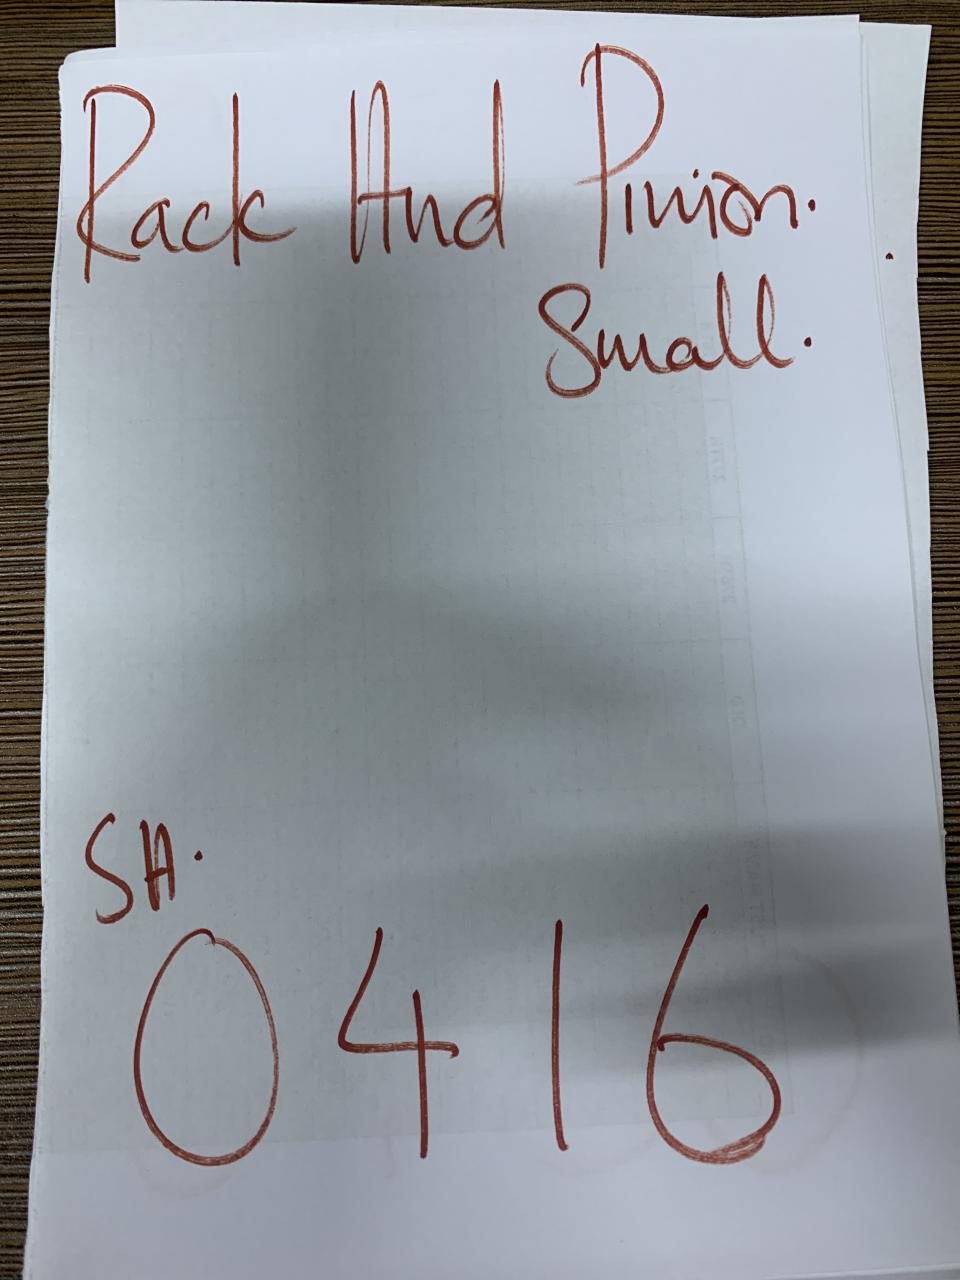 Rack And Pinion.
Small.
SH.
0416